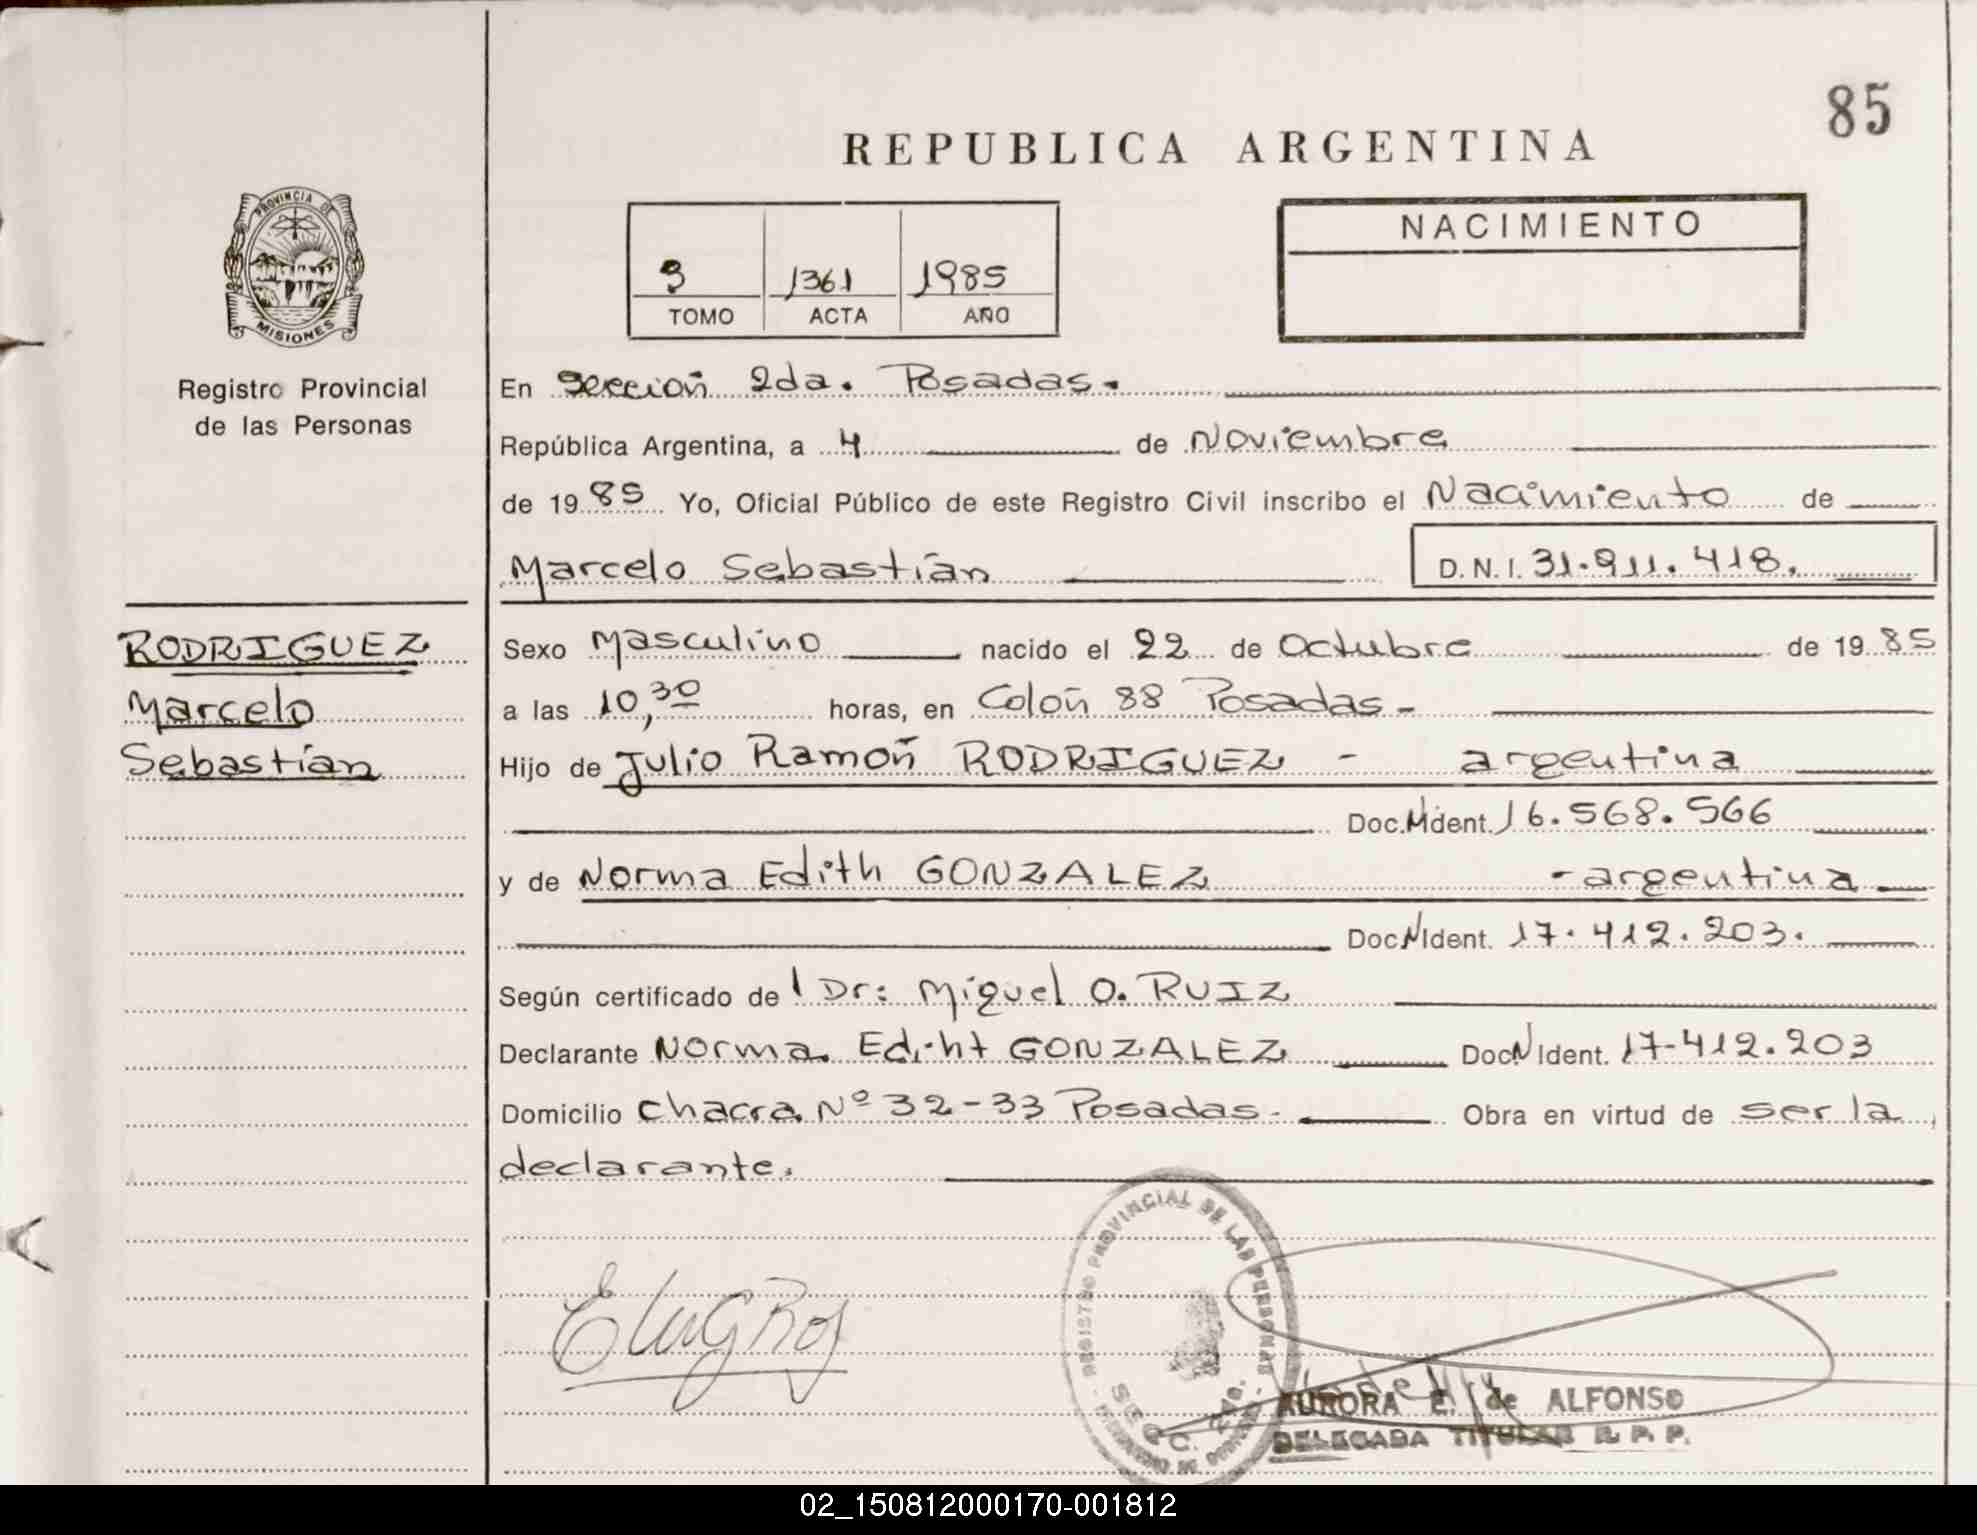 85
REPUBLICA ARGENTINA
PROVINCIA DE
MISIONES
Registro Provincial
de las Personas
3 1361 1985
TOMO ACTA AÑO
NACIMIENTO
En Sección 2da. Posadas.
República Argentina, a 4 de Noviembre
de 1985 Yo, Oficial Público de este Registro Civil inscribo el Nacimiento de
Marcelo Sebastián D.N.I. 31.911.418.
RODRIGUEZ
Marcelo
Sebastián
Sexo Masculino nacido el 22 de Octubre de 1985
a las 10,30 horas, en Colón 88 Posadas -
Hijo de Julio Ramón RODRIGUEZ - argentina
Doc. N Ident. 16.568.566
y de Norma Edith GONZALEZ - argentina
Doc N Ident. 17.412.203.
Según certificado de l Dr: Miguel O. RUIZ
Declarante Norma Ediht GONZALEZ Doc N Ident. 17-412.203
Domicilio Chacra Nº 32-33 Posadas - Obra en virtud de ser la
declarante.
REGISTRO PROVINCIAL DE LAS PERSONAS
SECC. 2da.
AURORA E. de ALFONSO
DELEGADA TITULAR R. P. P.
02_150812000170-001812